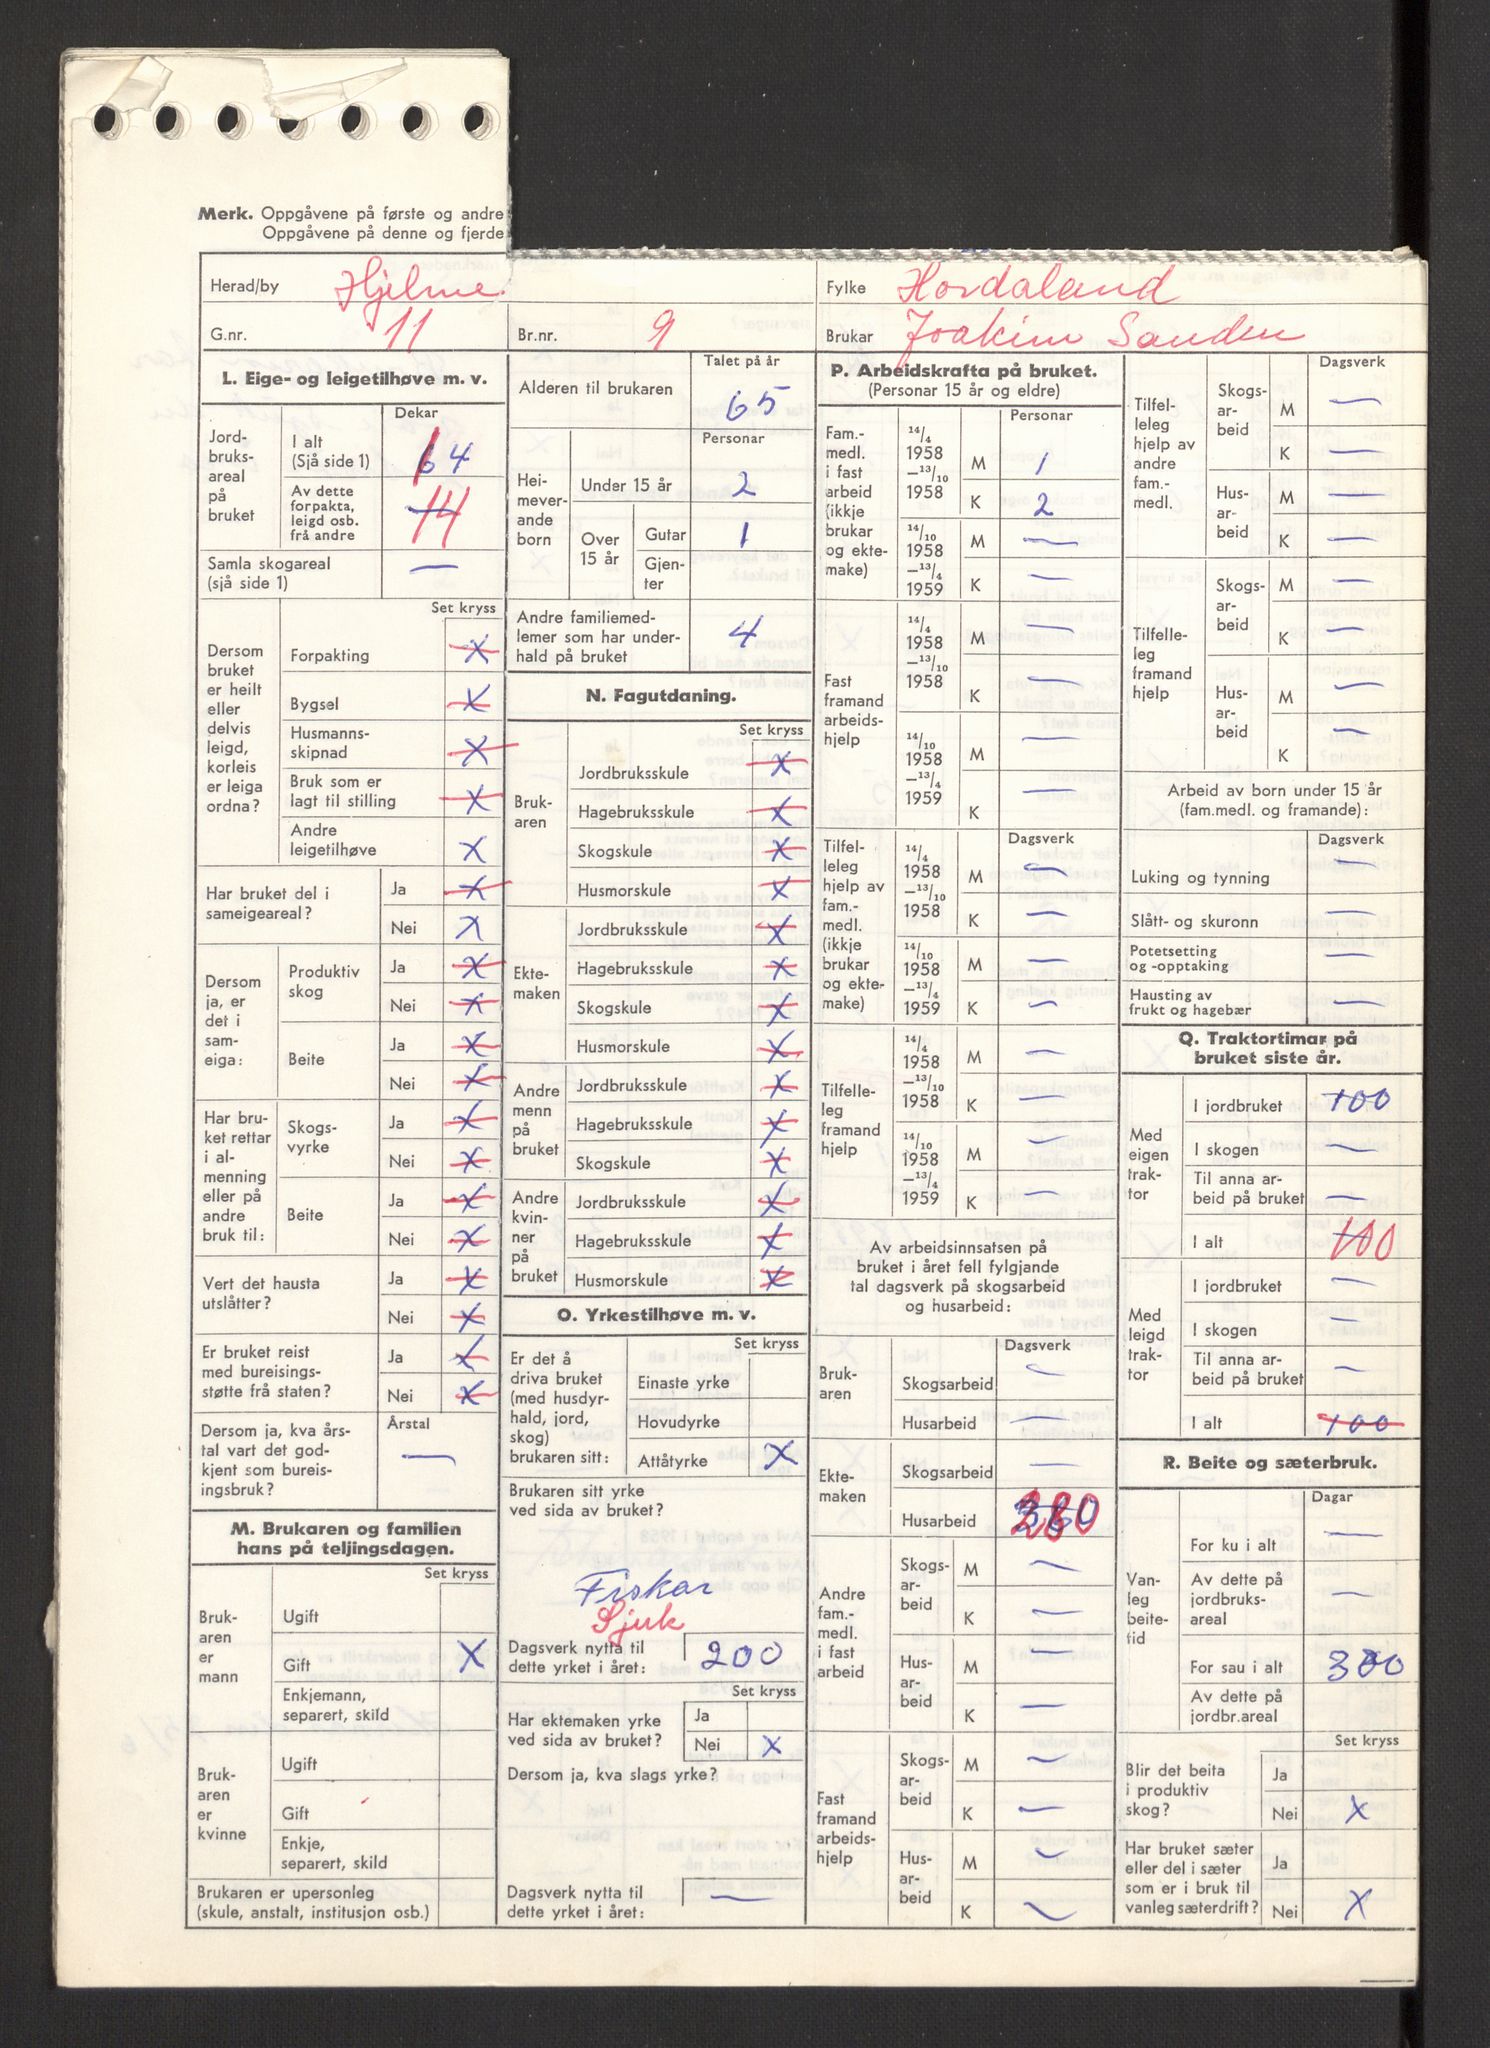 Merk. Oppgåvene på første og andre
Oppgåvene på denne og fjerde
Herad/by Hjelme
Fylke Hordaland
G.nr. 11
Br.nr. 9
Brukar Joakim Sanden
L. Eige- og leigetilhøve m. v.
Dekar
Jord-
bruks-
areal
på
bruket
I alt
(Sjå side 1) 64
Av dette
forpakta,
leigd osb.
frå andre 14
Samla skogareal
(sjå side 1) —
Set kryss
Dersom
bruket
er heilt
eller
delvis
leigd,
korleis
er leiga
ordna?
Forpakting X
Bygsel X
Husmanns-
skipnad X
Bruk som er
lagt til stilling X
Andre
leigetilhøve X
Har bruket del i
sameigeareal?
Ja X
Nei X
Dersom
ja, er
det i
sam-
eiga:
Produktiv
skog
Ja X
Nei X
Beite
Ja X
Nei X
Har bru-
ket rettar
i al-
menning
eller på
andre
bruk til:
Skogs-
vyrke
Ja X
Nei X
Beite
Ja X
Nei X
Vert det hausta
utslåtter?
Ja X
Nei X
Er bruket reist
med bureisings-
støtte frå staten?
Ja X
Nei X
Årstal
Dersom ja, kva års-
tal vart det god-
kjent som bureis-
ingsbruk? —
M. Brukaren og familien
hans på teljingsdagen.
Set kryss
Bruk-
aren
er
mann
Ugift
Gift X
Enkjemann,
separert, skild
Bruk-
aren
er
kvinne
Ugift
Gift
Enkje,
separert, skild
Brukaren er upersonleg
(skule, anstalt, institusjon osb.)
Talet på år
Alderen til brukaren 65
Personar
Hei-
mever-
ande
born
Under 15 år 2
Over
15 år
Gutar 1
Gjen-
ter
Andre familiemed-
lemer som har under-
hald på bruket 4
N. Fagutdaning.
Set kryss
Bruk-
aren
Jordbruksskule X
Hagebruksskule X
Skogskule X
Husmorskule X
Ekte-
maken
Jordbruksskule X
Hagebruksskule X
Skogskule X
Husmorskule X
Andre
menn
på
bruket
Jordbruksskule X
Hagebruksskule X
Skogskule X
Andre
kvin-
ner
på
bruket
Jordbruksskule X
Hagebruksskule X
Husmorskule X
O. Yrkestilhøve m. v.
Set kryss
Er det å
driva bruket
(med husdyr-
hald, jord,
skog)
brukaren sitt:
Einaste yrke
Hovudyrke
Attåtyrke X
Brukaren sitt yrke
ved sida av bruket?
Fiskar
Sjuk
Dagsverk nytta til
dette yrket i året: 200
Set kryss
Har ektemaken yrke
ved sida av bruket?
Ja
Nei X
Dersom ja, kva slags yrke?
Dagsverk nytta til
dette yrket i året: —
P. Arbeidskrafta på bruket.
(Personar 15 år og eldre)
Personar
Fam.-
medl.
i fast
arbeid
(ikkje
brukar
og ekte-
make)
14/4
1958
—13/10
1958
M 1
K 2
14/10
1958
—13/4
1959
M —
K —
Fast
framand
arbeids-
hjelp
14/4
1958
—13/10
1958
M —
K —
14/10
1958
—13/4
1959
M —
K —
Dagsverk
Tilfel-
leleg
hjelp av
fam.-
medl.
(ikkje
brukar
og ekte-
make)
14/4
1958
—13/10
1958
M —
K —
14/10
1958
—13/4
1959
M —
K —
Tilfelle-
leg
framand
hjelp
14/4
1958
—13/10
1958
M —
K —
14/10
1958
—13/4
1959
M —
K —
Av arbeidsinnsatsen på
bruket i året fell fylgjande
tal dagsverk på skogsarbeid
og husarbeid:
Dagsverk
Bruk-
aren
Skogsarbeid —
Husarbeid —
Ekte-
maken
Skogsarbeid —
Husarbeid
Andre
fam.-
medl.
i fast
arbeid
Skogs-
ar-
beid
M —
K —
Hus-
ar-
beid
M —
K —
Fast
framand
arbeids-
hjelp
Skogs-
ar-
beid
M —
K —
Hus-
ar-
beid
M —
K —
Dagsverk
Tilfel-
leleg
hjelp av
andre
fam.-
medl.
Skogs-
ar-
beid
M —
K —
Hus-
ar-
beid
M —
K —
Tilfelle-
leg
framand
hjelp
Skogs-
ar-
beid
M —
K —
Hus-
ar-
beid
M —
K —
Arbeid av born under 15 år
(fam.medl. og framande):
Dagsverk
Luking og tynning —
Slått- og skuronn —
Potetsetting
og -opptaking —
Hausting av
frukt og hagebær —
Q. Traktortimar på
bruket siste år.
Med
eigen
trak-
tor
I jordbruket 100
I skogen —
Til anna ar-
beid på bruket —
I alt 100
Med
leigd
trak-
tor
I jordbruket —
I skogen —
Til anna ar-
beid på bruket —
I alt 100
R. Beite og sæterbruk.
Dagar
Van-
leg
beite-
tid
For ku i alt —
Av dette på
jordbruks-
areal —
For sau i alt 300
Av dette på
jordbr.areal
Set kryss
Blir det beita
i produktiv
skog?
Ja
Nei X
Har bruket sæter
eller del i sæter
som er i bruk til
vanleg sæterdrift?
Ja
Nei X